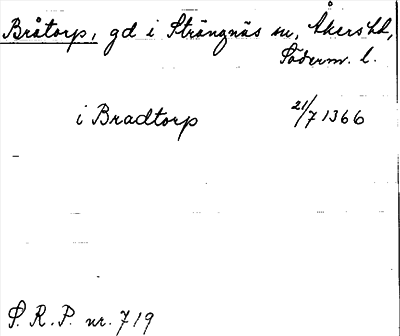 Bråtorp, gd i Strängnäs sn, Åkers hd,
Söderm. l.
i Bradtorp 21/7 1366
S. R. P. nr. 719